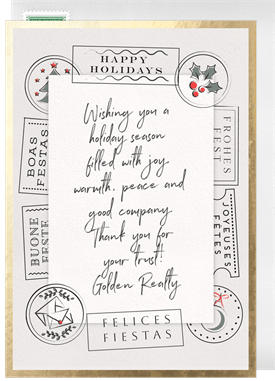 HAPPY
HOLIDAYS
Wishing you a
holiday season
filled with joy
warmth, peace and
good company
Thank you for
your trust!
Golden Realty
BOAS
FESTAS
FROHES
FEST
BUONE
FESTE
JOYEUSES
FÊTES
FELICES
FIESTAS